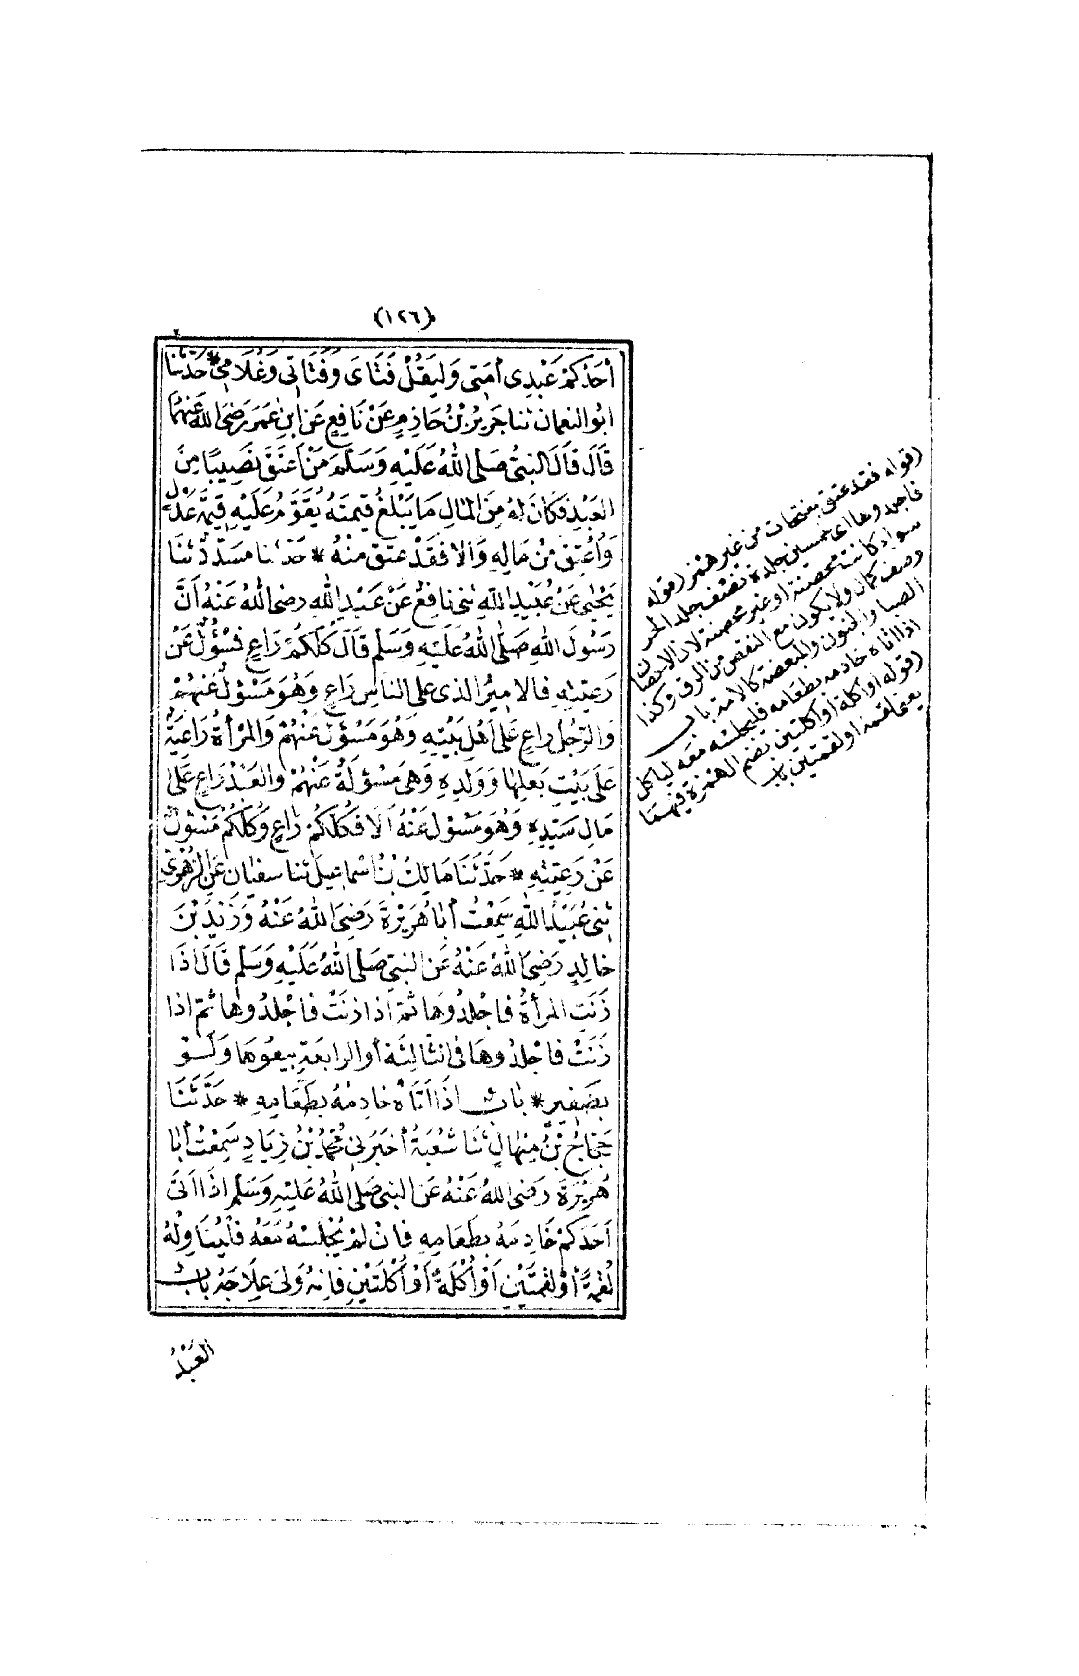 (١٢٦)
أَحَدُكُمْ عَبْدِى أَمَتِى وَلْيَقُلْ فَتَاىَ وَفَتَاتِى وَغُلَامِى * حَدَّثَنَا
ابُو النعمان ثنا جَرِيرُ بْنُ حَازِمٍ عَنْ نَافِعٍ عَنِ ابْنِ عُمَرَ رَضِىَ اللهُ عَنْهُمَا
قَالَ قَالَ النَّبِىُّ صَلَى اللهُ عَلَيْهِ وَسَلَّمَ مَنْ أَعْتَقَ نَصِيبًا مِنَ
العَبْدِ فَكَانَ لَهُ مِنَ المَالِ مَا يَبْلُغُ قِيمَتَهُ يُقَوَّمُ عَلَيْهِ قِيمَةَ عَدْلٍ
وَأُعْتِقَ مِنْ مَالِهِ وَالا فَقَدْ عَتَقَ مِنْهُ * حَدَّثنا مُسَدَّدٌ ثَنَا
يَحْيَى عَنْ عُبَيْدِ اللهِ ثنى نَافِعٌ عَنْ عَبْدِ اللهِ رضى اللهُ عَنْهُ أَنَّ
رَسُولَ اللهِ صَلَّى اللهُ عَلَيْهِ وَسَلَّم قَالَ كُلُّكُمْ رَاعٍ فَمَسْؤُلٌ عَنْ
رَعِيَّتِهِ فالامِيرُ الذى على الناسِ رَاعٍ وَهُوَ مَسْؤُلٌ عَنْهُمْ
وَالرَّجُلُ رَاعٍ عَلَى أَهْلِ بَيْتِهِ وَهُوَ مَسْؤُلٌ عَنْهُمْ وَالمَرْأَةُ رَاعِيَةٌ
عَلَى بَيْتِ بَعْلِهَا وَوَلَدِهِ وَهِىَ مَسْؤُلَةٌ عَنْهُمْ وَالعَبْدُ رَاعٍ عَلَى
مَالِ سَيِّدِهِ وَهُوَ مَسْؤُلٌ عَنْهُ أَلَا فَكُلُّكُمْ رَاعٍ وَكُلُّكُمْ مَسْئولٌ
عَنْ رَعِيَّتِهِ * حَدَّثَنَا مَالِكُ بْنُ اسْمَاعِيلَ ثنا سفيان عَنِ الزُّهْرِىِّ
ثَنِى عُبَيْدُ اللهِ سَمِعْتُ أَبَا هُرَيْرَةَ رَضِىَ اللهُ عَنْهُ وَزَيْدَ بْنَ
خَالِدٍ رَضِىَ اللهُ عَنْهُ عَنِ النَّبِىِّ صَلَّى اللهُ عَلَيْهِ وَسَلَّمَ قَالَ اذَا
زَنَتِ المَرْأَةُ فَاجْلِدُوهَا ثُمَّ اذا زَنَتْ فَاجْلِدُوهَا ثُمَّ اذا
زَنَتْ فَاجْلِدُوهَا فى الثالِثَةِ أَوِ الرابعَةِ بِيعُوهَا وَلَوْ
بِضَفِيرٍ * بابٌ اذَا أَتَاهُ خَادِمُهُ بِطَعَامِهِ * حَدَّثَنَا
حَجَّاجُ بْنُ مِنْهَالٍ ثَنَا شُعْبَةُ أَخْبَرَنِى مُحَمَّدُ بْنُ زِيَادٍ سَمِعْتُ أَبَا
هُرَيْرَةَ رَضِىَ اللهُ عَنْهُ عَنِ النَّبِى صَلَى اللهُ عَلَيْهِ وَسَلَّمَ اذَا أَتَى
أَحَدَكُمْ خَادِمُهُ بِطَعَامِهِ فَانْ لَمْ يُجْلِسْهُ مَعَهُ فَلْيُنَاوِلْهُ
لُقْمَةً أَوْ لُقْمَتَيْنِ أَوْ أُكْلَةً أَوْ أُكْلَتَيْنِ فَانَّهُ وَلِىَ عِلَاجَهُ بابُ
العَبْدُ
(قوله فقد عتق بفتحات من غير همز (قوله
فاجلدوها اى خمسين جلدة نصف جلد الحر
سواء كانت محصنة او غير محصنة لان الاحصان
وصف كمال ولا يكون مع النقص من الرق وكذا
الصبا والجنون والمبعضة كالامة باب
اذا اتاه خادمه بطعامه فليجلسه معه لياكل
(قوله او أكلة او أكلتين بضم الهمزة فيهما
يعنى لقمة او لقمتين باب